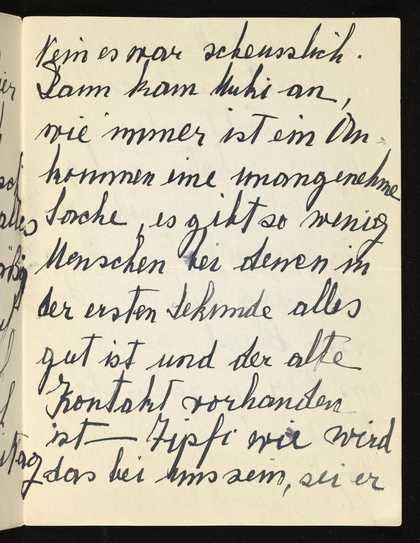 Nein es war scheusslich.
Dann kam Muki an,
wie immer ist ein An-
kommen eine unangenehme
Sache, es gibt so wenig
Menschen bei denen in
der ersten Sekunde alles
gut ist und der alte
Kontakt vorhanden
ist — Zipfi wie wird
das bei uns sein, sei er
alles